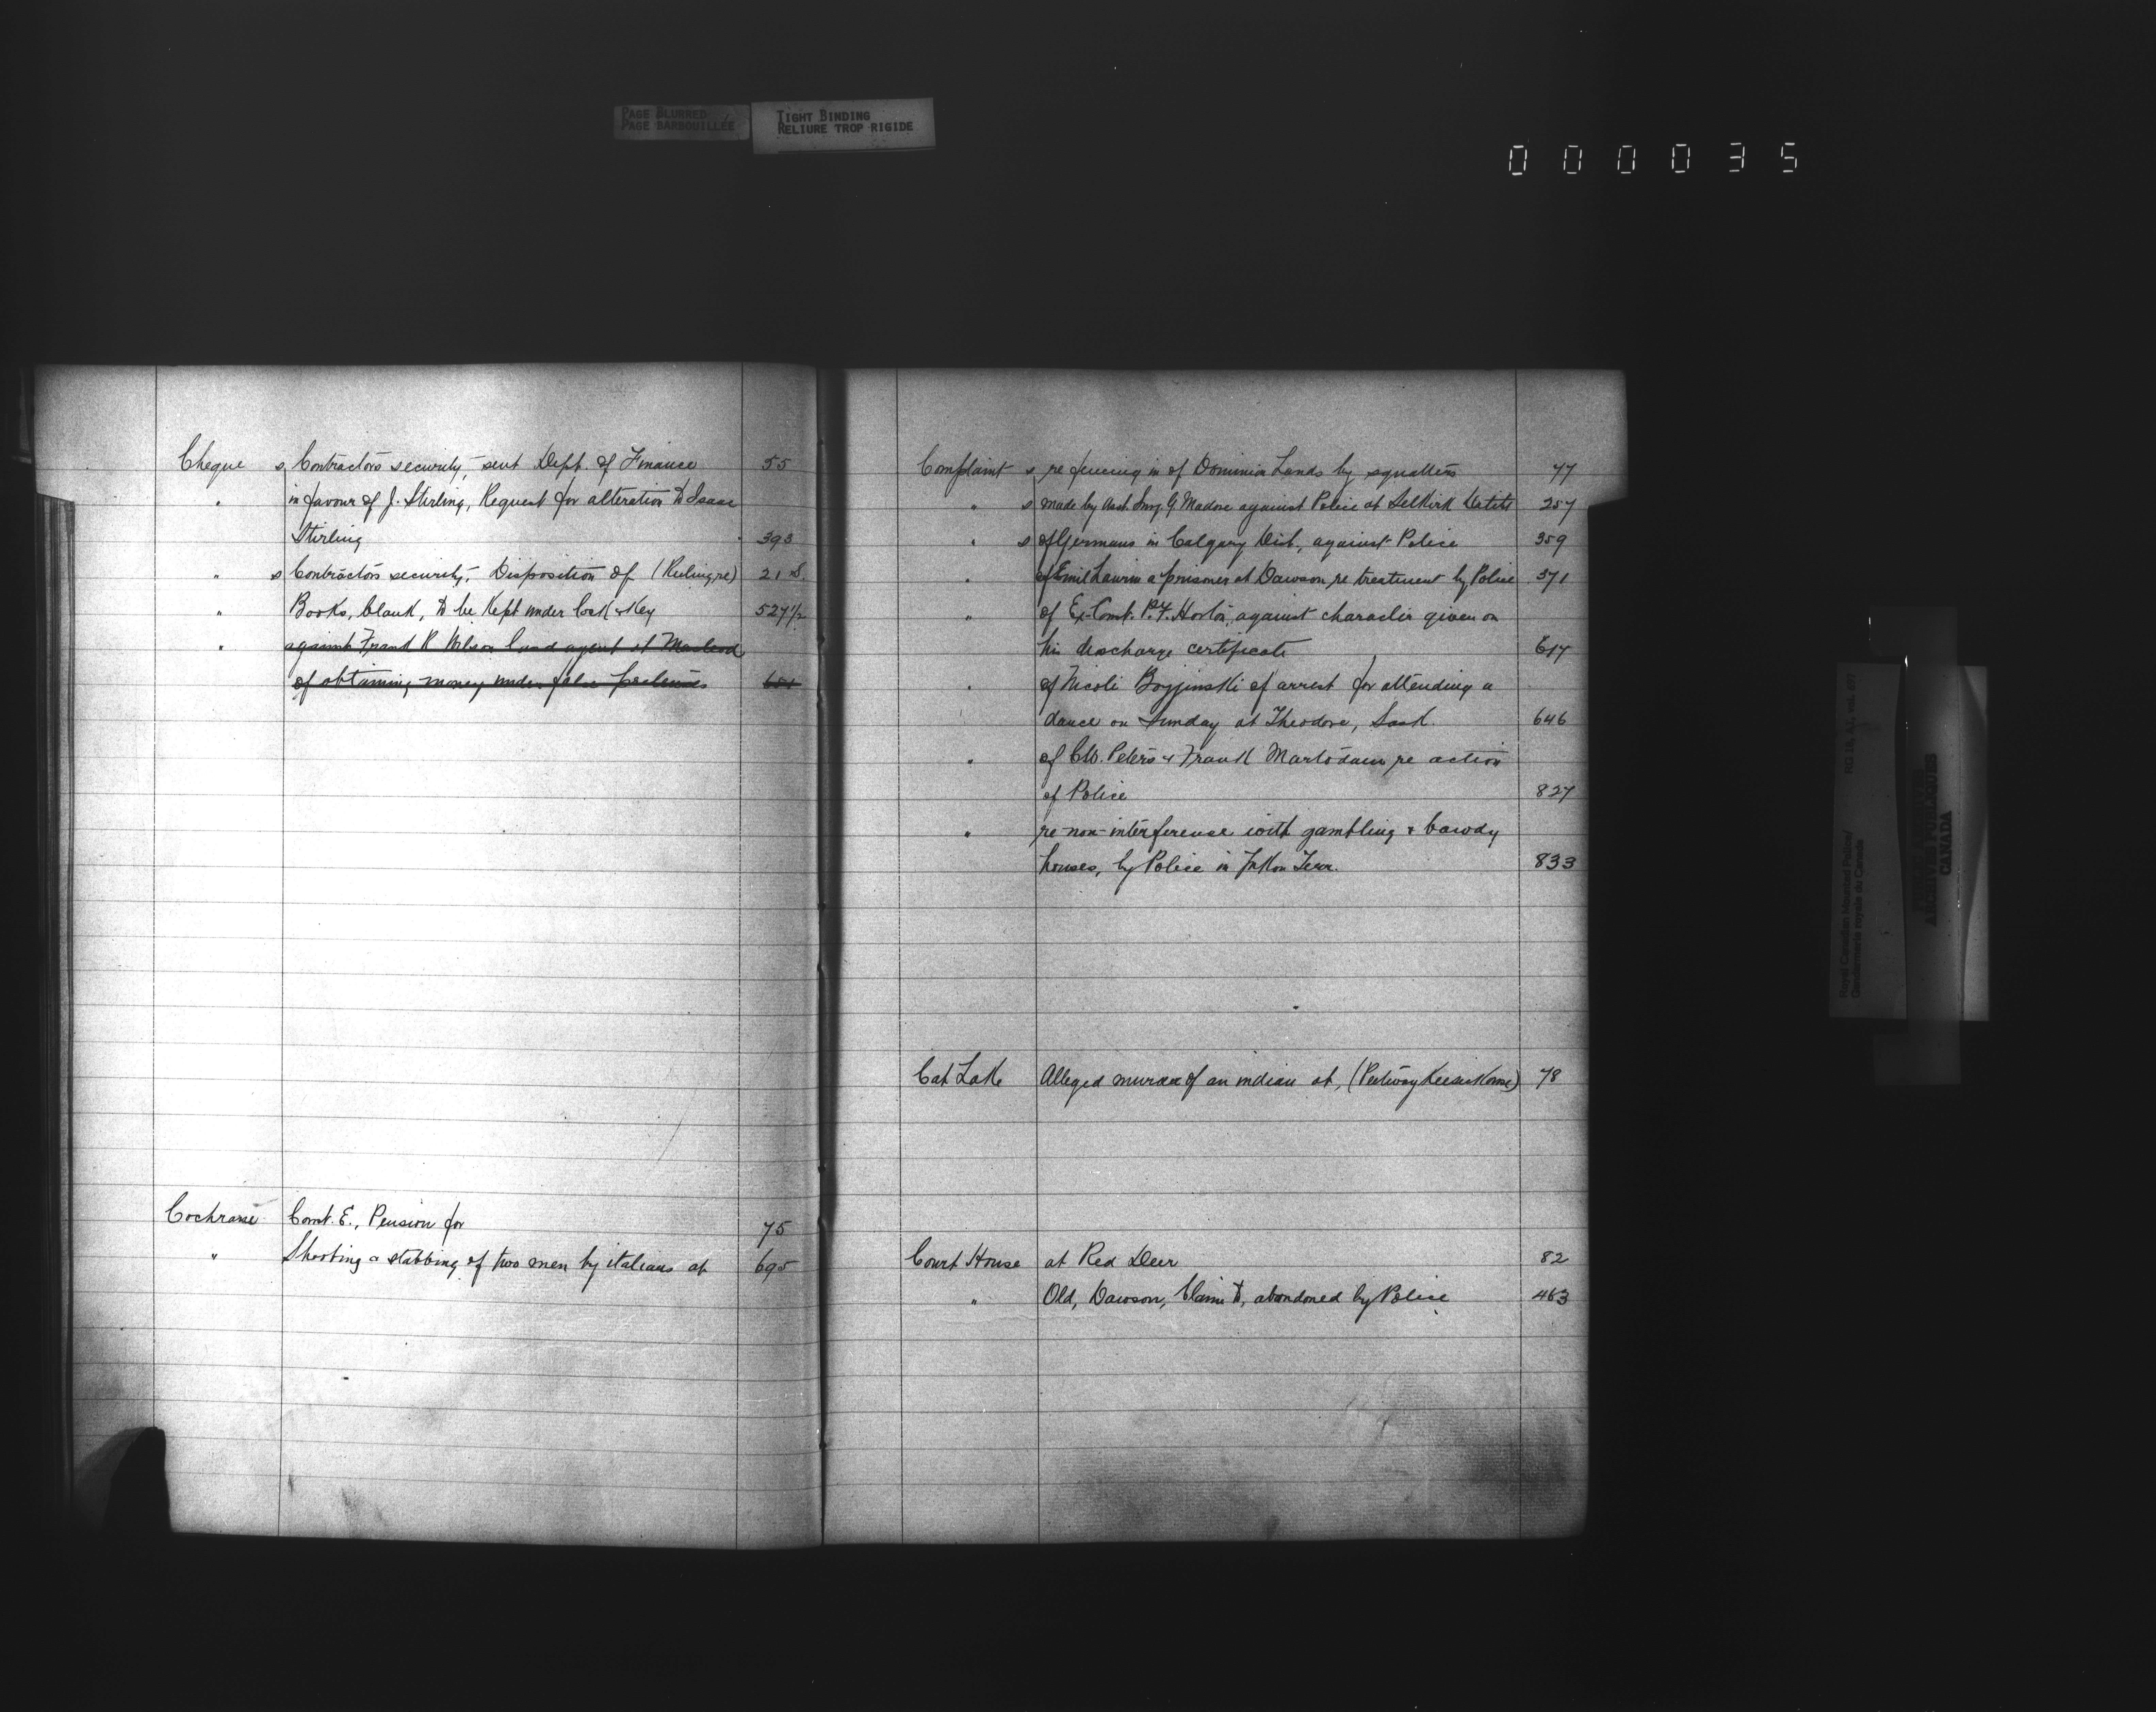 PAGE BLURRED
PAGE BARBOUILLÉE
TIGHT BINDING
RELIURE TROP RIGIDE
000035
Cheque s, Contractors security, sent Dept. of Finance 55
" in favour of J. Stirling, Request for alteration to Isaac
Stirling 393
" s Contractors security, Disposition of (Ruling re) 21 S.
" Books, blank, to be kept under lock & key 527 1/2
" against Frank R Nelson land agent at Macleod
of obtaining money under false pretenses
Cochrane Const. E., Pension for 75
" Shooting & stabbing of two men by italians at 695
Complaint s re fencing in of Dominion Lands by squatters 77
" s made by Asst. Surg. G Madore against Police at Selkirk 257
" s of Germans in Calgary Dist., against Police 359
" of Emil Laurin a prisoner at Dawson re treatment by Police 371
" of Ex-Const. P.F. Horton, against character given on
his discharge certificate 617
" of Nicoli of arrest for attending a
dance on Sunday at Theodore, Sask. 646
" of C.W. Peters & Frank re action
of Police 827
" re non-interference with gambling & bawdy
houses, by Police in Yukon Terr. 833
Cat Lake Alleged murder of an indian at, 78
Court House at Red Deer 82
" Old, Dawson, Claim to, abandoned by Police 463
RG 18, A1, vol. 497
Royal Canadian Mounted Police/
Gendarmerie royale du Canada
PUBLIC ARCHIVES
ARCHIVES PUBLIQUES
CANADA